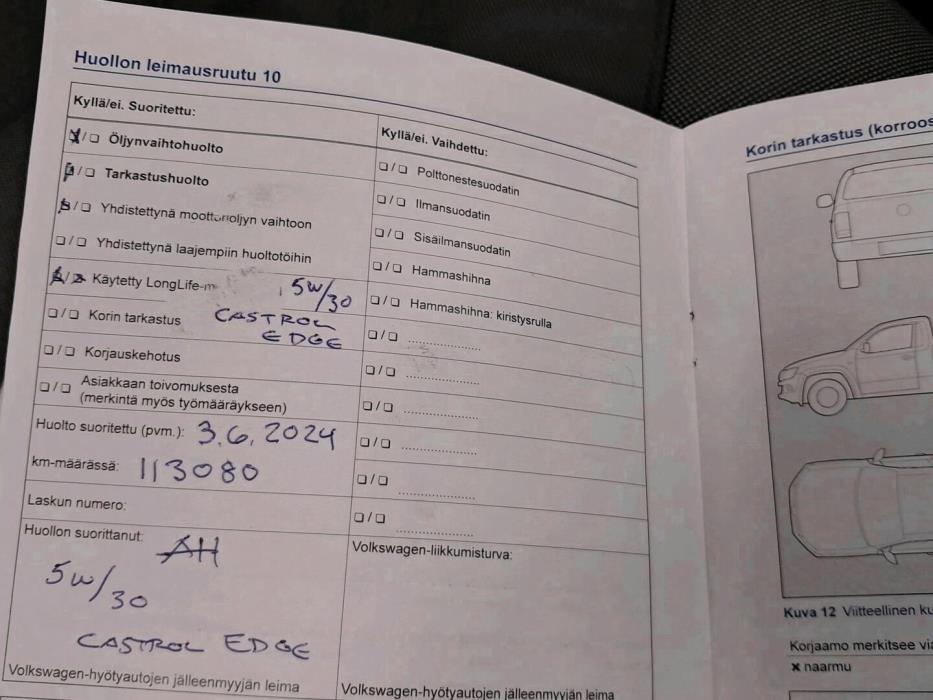 Huollon leimausruutu 10
Kyllä/ei. Suoritettu:
Öljynvaihtohuolto
Tarkastushuolto
Yhdistettynä moottorioljyn vaihtoon
Yhdistettynä laajempiin huoltotöihin
Käytetty LongLife-m
5W/30
Korin tarkastus
CASTROL
EDGE
Korjauskehotus
Asiakkaan toivomuksesta
(merkintä myös työmääräykseen)
Huolto suoritettu (pvm.): 3.6.2024
km-määrässä: 113080
Laskun numero:
Huollon suorittanut: AH
5W/30
CASTROL EDGE
Volkswagen-hyötyautojen jälleenmyyjän leima
Kyllä/ei. Vaihdettu:
Polttonestesuodatin
Ilmansuodatin
Sisäilmansuodatin
Hammashihna
Hammashihna: kiristysrulla
Volkswagen-liikkumisturva:
Volkswagen-hyötyautojen jälleenmyyjän leima
Korin tarkastus (korroos
Kuva 12 Viitteellinen ku
Korjaamo merkitsee via
× naarmu